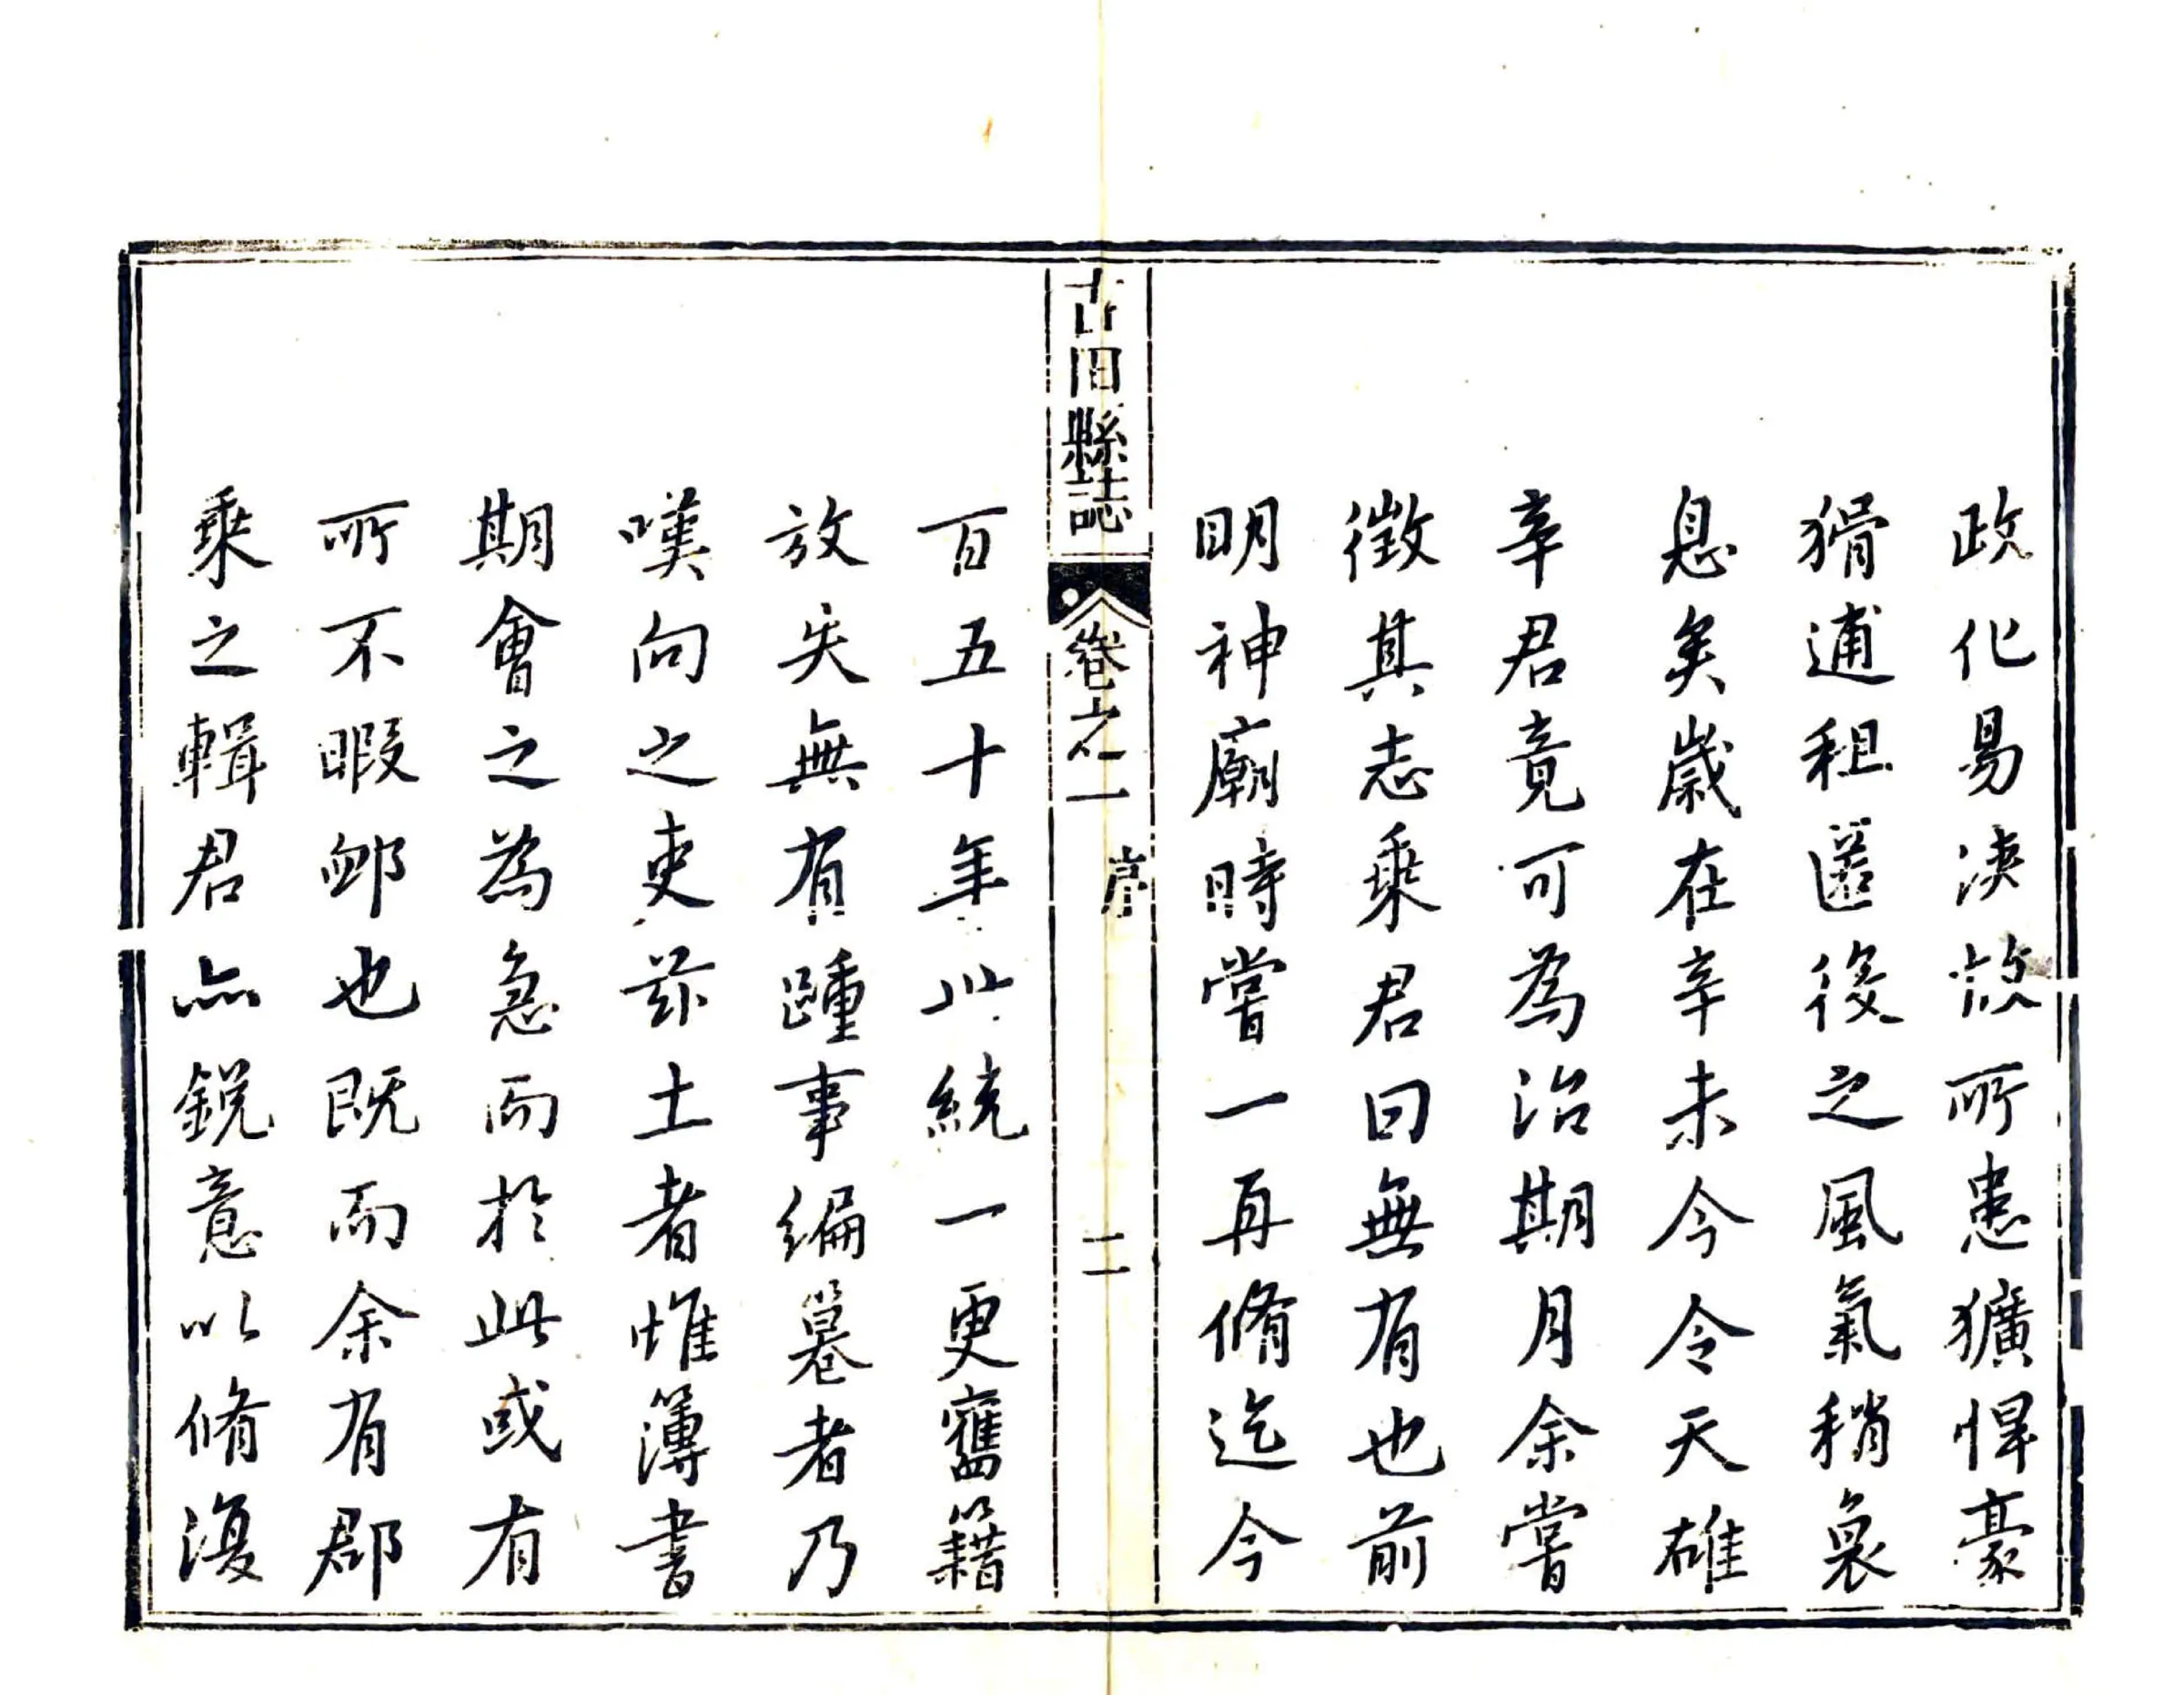 政化易浹故所患獷悍豪
猾逋租匿役之風氣稍裒
息矣歲在辛未今令天雄
辛君竟可為治期月余嘗
徵其志乘君曰無有也前
明神廟時嘗一再脩迄今
古田縣誌 卷之一 序 二
百五十年此統一更舊籍
放失無有踵事編纂者乃
嘆向之吏茲土者惟簿書
期會之為急而於此或有
所不暇卹也既而余有郡
乘之輯君亦銳意以脩復